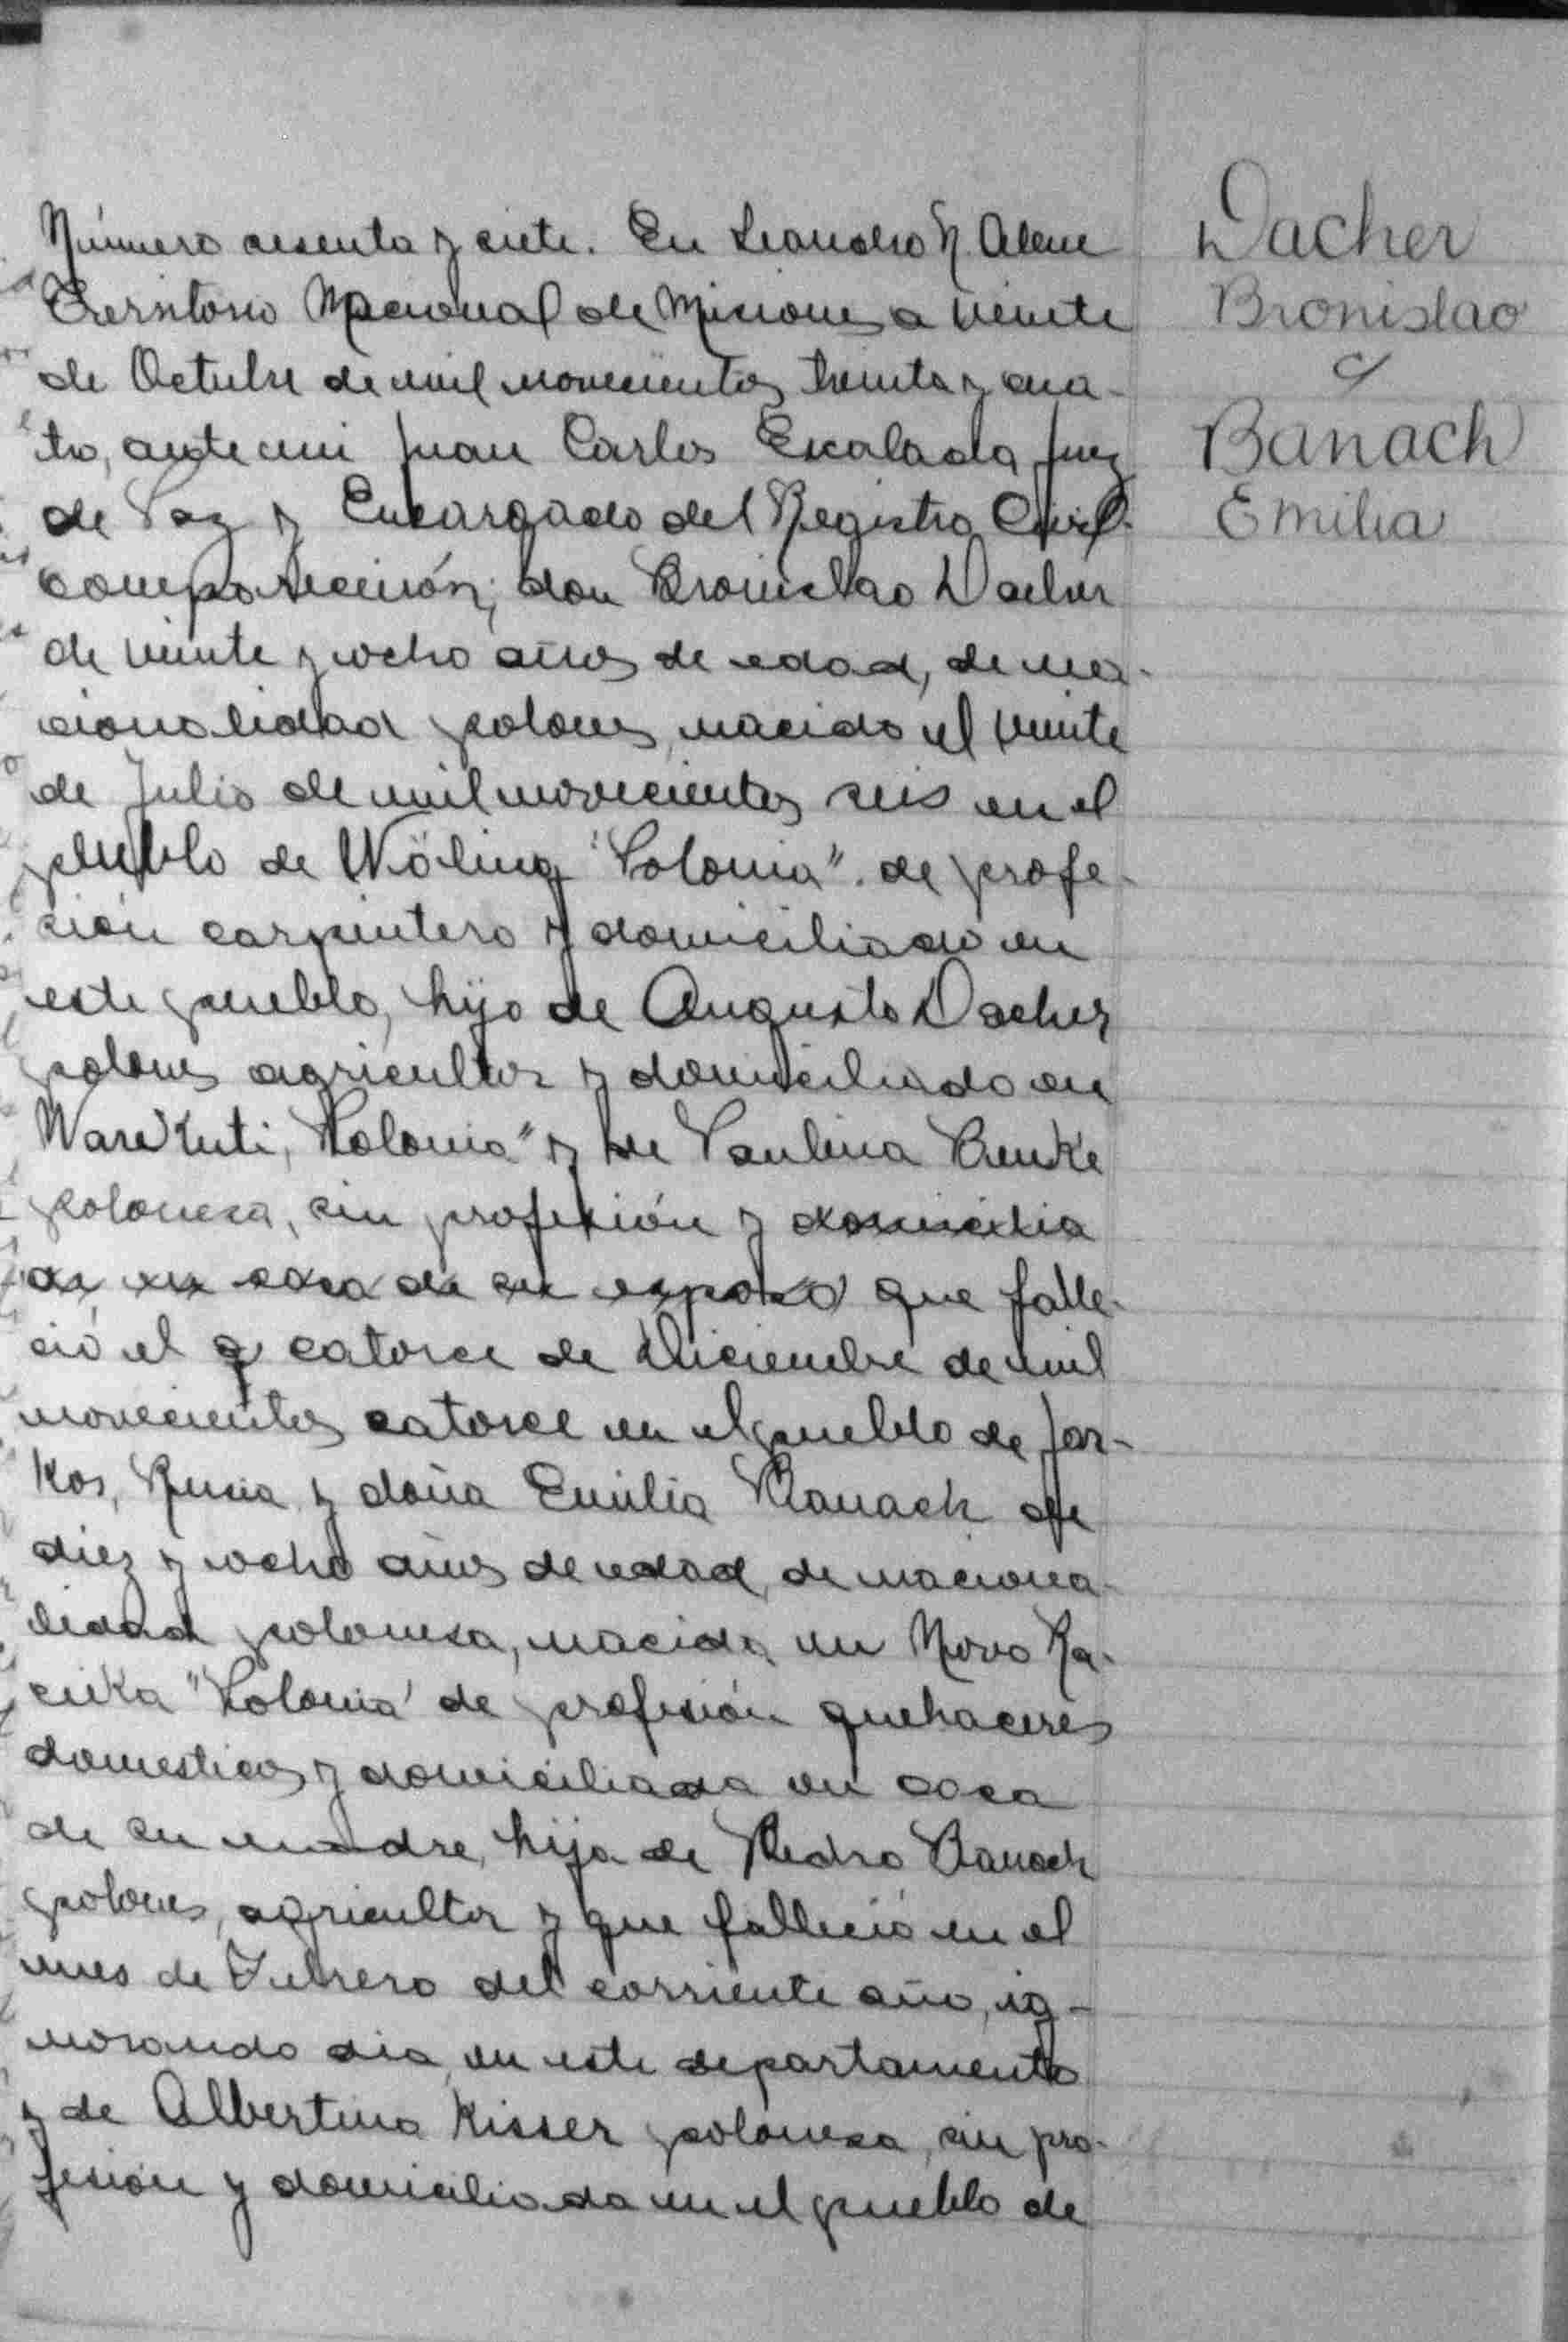 Número sesenta y siete. En Leandro N. Alem
Territorio Nacional de Misiones a veinte
de Octubre de mil novecientos treinta y cua-
tro, ante mi Juan Carlos Escalada Juez
de Paz y Encargado del Registro Civil
comparecieron; don Bronislao Dacher
de veinte y ocho años de edad, de na-
cionalidad polones, nacido el veinte
de Julio de mil novecientos seis en el
pueblo de "Polonia". de profe-
sión carpintero y domiciliado en
este pueblo, hijo de Augusto Dacher
polones agricultor y domiciliado en
"Polonia" y de Paulina
polonesa, sin profesión y domicilia
da en casa de su esposo que falle-
ció el catorce de Diciembre de mil
novecientos catorce en el pueblo de Jar-
kos, Rusia y doña Emilia Banach de
diez y ocho años de edad, de naciona-
lidad polonesa, nacida en Novo Ra-
"Polonia" de profesión quehaceres
domesticos y domiciliada en casa
de su madre, hija de Pedro Banach
polones, agricultor y que falleció en el
mes de Febrero del corriente año, ig-
norando dia, en este departamento
y de Albertina Kisser polonesa, sin pro-
fesión y domiciliada en el pueblo de
Dacher
Bronislao
c/
Banach
Emilia